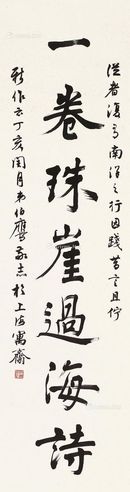 從者復有南海之行因踐舊言且佇
一卷珠崖過海詩
新作云丁亥閏月弟伯鷹敬志於上海寓齋